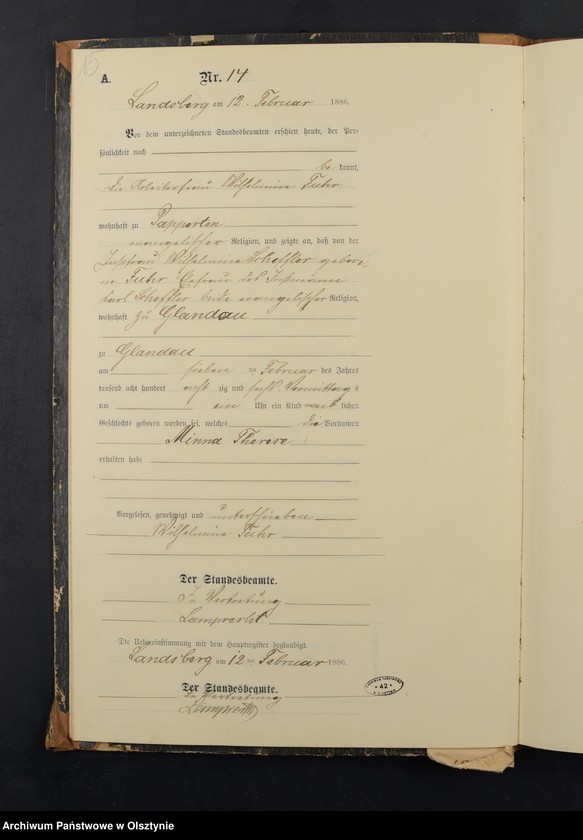 15
A.
Nr. 14
Landsberg am 12. Februar 1886.
Vor dem unterzeichneten Standesbeamten erschien heute, der Per-
sönlichkeit nach
be kannt,
die Arbeiterfrau Wilhelmine Fuhr
wohnhaft zu Papperten
evangelischer Religion, und zeigte an, daß von der
Instfrau Wilhelmine Scheffler gebore-
ne Fuhr Ehefrau des Instmanns
Karl Scheffler beide evangelischer Religion,
wohnhaft zu Glandau
zu Glandau
am sieben ten Februar des Jahres
tausend acht hundert acht zig und sechs Vormittags
um ein Uhr ein Kind weib lichen
Geschlechts geboren worden sei, welches die Vornamen
Minna Therese
erhalten habe
Vorgelesen, genehmigt und unterschrieben
Wilhelmine Fuhr
Der Standesbeamte.
In Vertretung
Lamprecht
Die Uebereinstimmung mit dem Hauptregister beglaubigt.
Landsberg am 12 ten Februar 1886.
Der Standesbeamte.
In Vertretung
Lamprecht
42
Archiwum Państwowe w Olsztynie